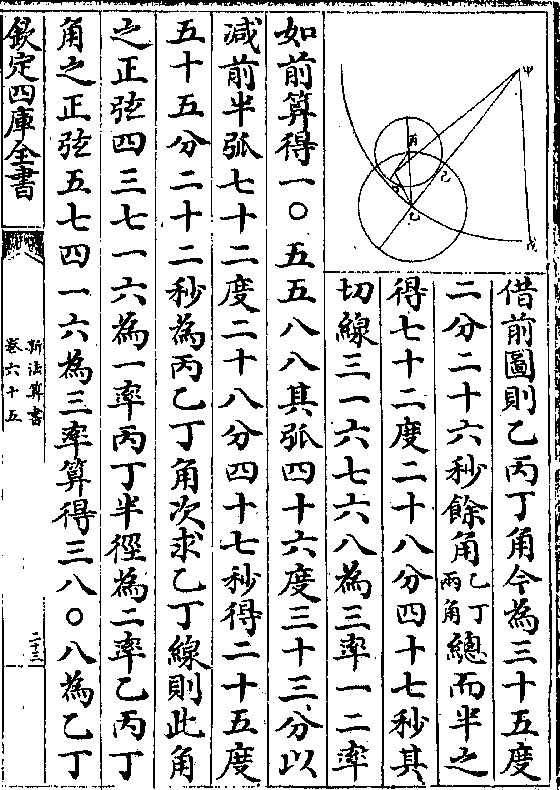 甲
丙
己
丁
乙
戊
借前圖則乙丙丁角今為三十五度
二分二十六秒餘角乙丁兩角總而半之
得七十二度二十八分四十七秒其
切線三一六七六八為三率一二率
如前算得一〇五五八八其弧四十六度三十三分以
減前半弧七十二度二十八分四十七秒得二十五度
五十五分二十二秒為丙乙丁角次求乙丁線則此角
之正弦四三七一六為一率丙丁半徑為二率乙丙丁
角之正弦五七四一六為三率算得三八〇八為乙丁
欽定四庫全書
新法算書
卷六十五
二十三